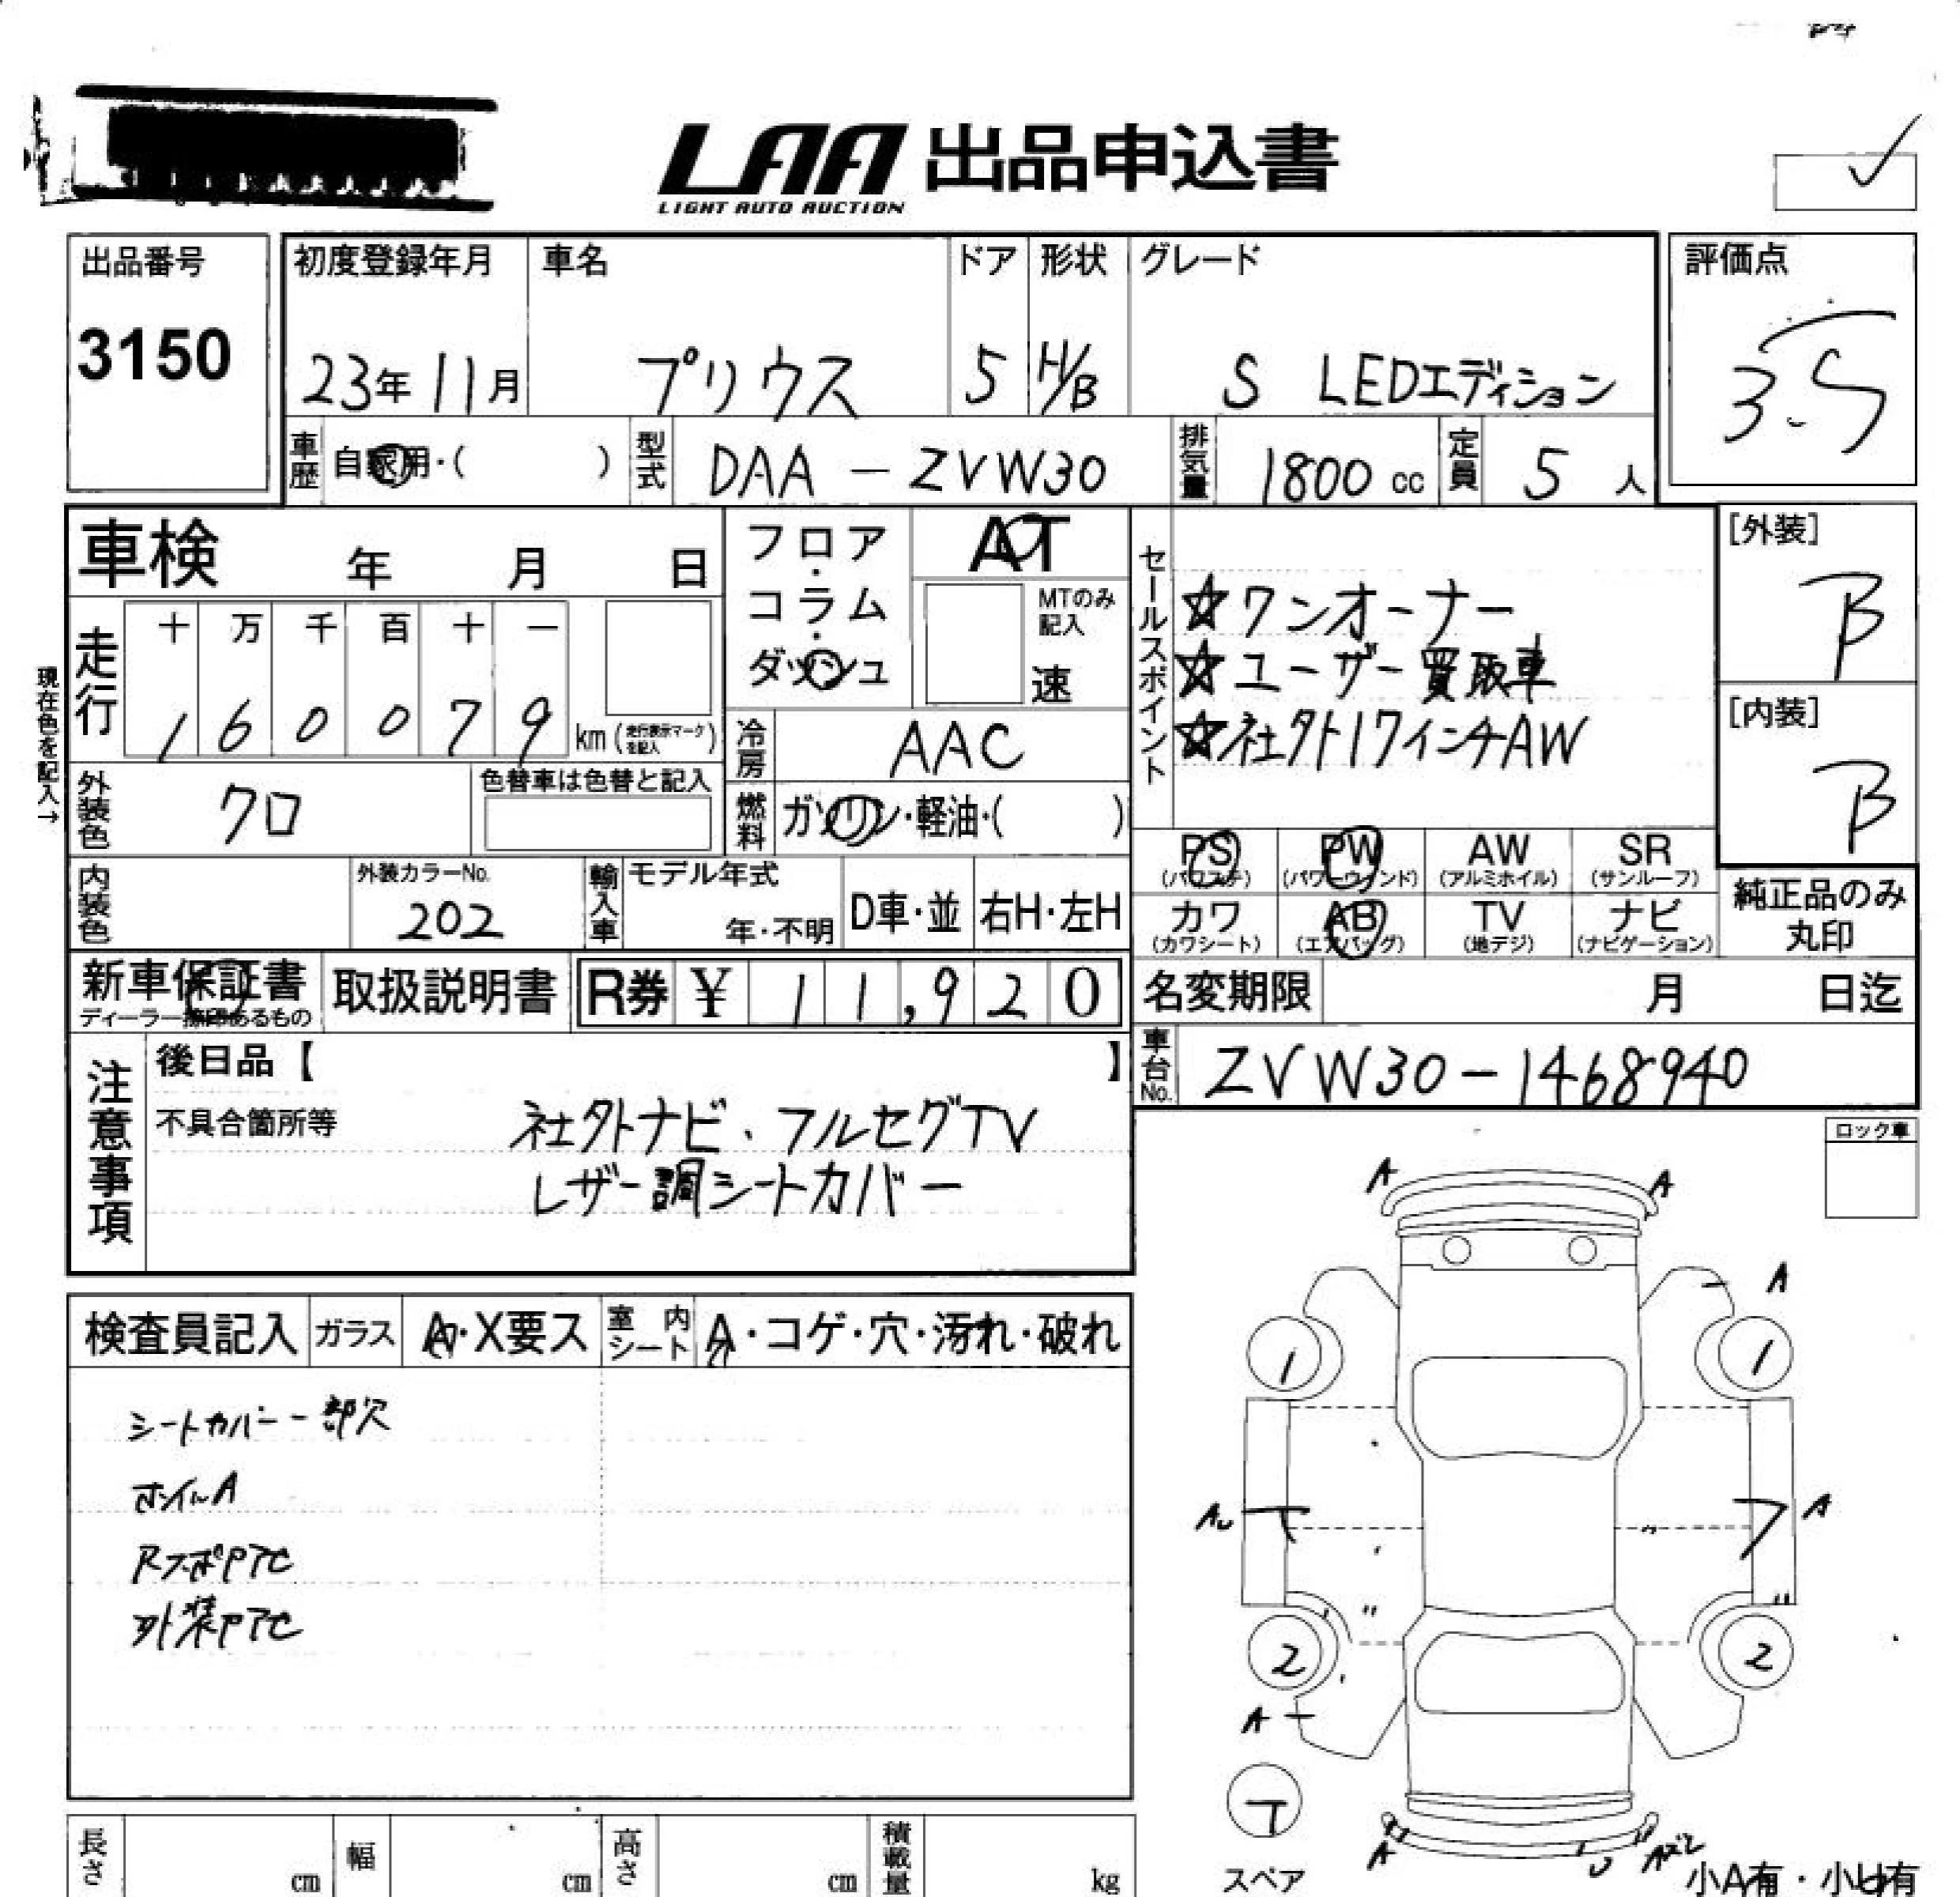 LAA 出品申込書
LIGHT AUTO AUCTION
出品番号
3150
初度登録年月
23年 11月
車名
プリウス
ドア
5
形状
H/B
グレード
S LEDエディション
評価点
3.5
車歴
自家用・( )
型式
DAA - ZVW30
排気量
1800 cc
定員
5 人
車検 年 月 日
フロア・コラム・ダッシュ
AT
MTのみ記入
速
セールスポイント
☆ワンオーナー
☆ユーザー買取車
☆社外17インチAW
[外装]
B
[内装]
B
現在色を記入→
走行
十 万 千 百 十 一
1 6 0 0 7 9 km (走行表示マークを記入)
冷房
AAC
外装色
クロ
色替車は色替と記入
燃料
ガソリン・軽油・( )
内装色
外装カラーNo.
202
輸入車
モデル年式
年・不明
D車・並
右H・左H
PS (パワステ)
PW (パワーウインド)
AW (アルミホイル)
SR (サンルーフ)
カワ (カワシート)
AB (エアバッグ)
TV (地デジ)
ナビ (ナビゲーション)
純正品のみ丸印
新車保証書
ディーラー捺印あるもの
取扱説明書
R券 ¥ 11,920
名変期限 月 日迄
車台No.
ZVW30-1468940
注意事項
後日品【 】
不具合箇所等
社外ナビ、フルセグTV
レザー調シートカバー
ロック車
検査員記入
ガラス
A・X要ス
室内シート
A・コゲ・穴・汚れ・破れ
シートカバー一部欠
ホイルA
RスポPTC
外装PTC
A
A
A
1
1
AU
A
2
2
A
T
スペア
A
U
Aズレ
小A有・小U有
長さ cm
幅 cm
高さ cm
積載量 kg